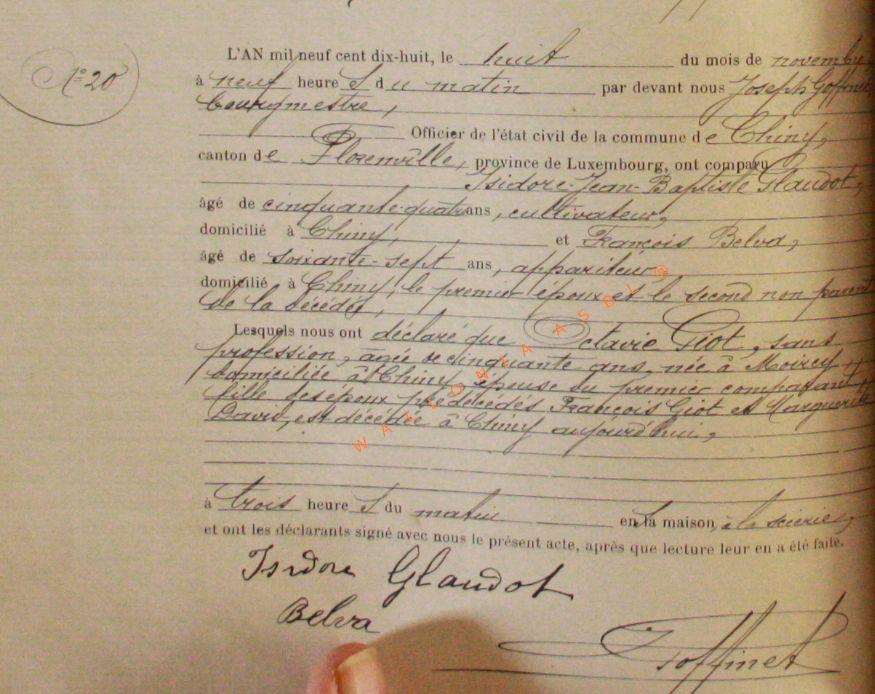 N° 20
L'AN mil neuf cent dix-huit, le huit du mois de novembre,
à neuf heures du matin par devant nous Joseph Goffinet
bourgmestre,
Officier de l'état civil de la commune de Chiny,
canton de Florenville, province de Luxembourg, ont comparu
Isidore-Jean-Baptiste Glaudot,
âgé de cinquante-quatre ans, cultivateur,
domicilié à Chiny, et François Belva,
âgé de soixante-sept ans, appariteur,
domicilié à Chiny, le premier époux et le second non parent
de la décédée,
Lesquels nous ont déclaré que Octavie Giot, sans
profession, âgée de cinquante ans, née à Moircy,
domiciliée à Chiny, épouse du premier comparant,
fille des époux prédécédés François Giot et Marguerite
David, est décédée à Chiny aujourd'hui,
à trois heures du matin en sa maison, à la scierie,
et ont les déclarants signé avec nous le présent acte, après que lecture leur en a été faite.
Isidore Glaudot
Belva
J Goffinet
WALLONIA ASBL ©